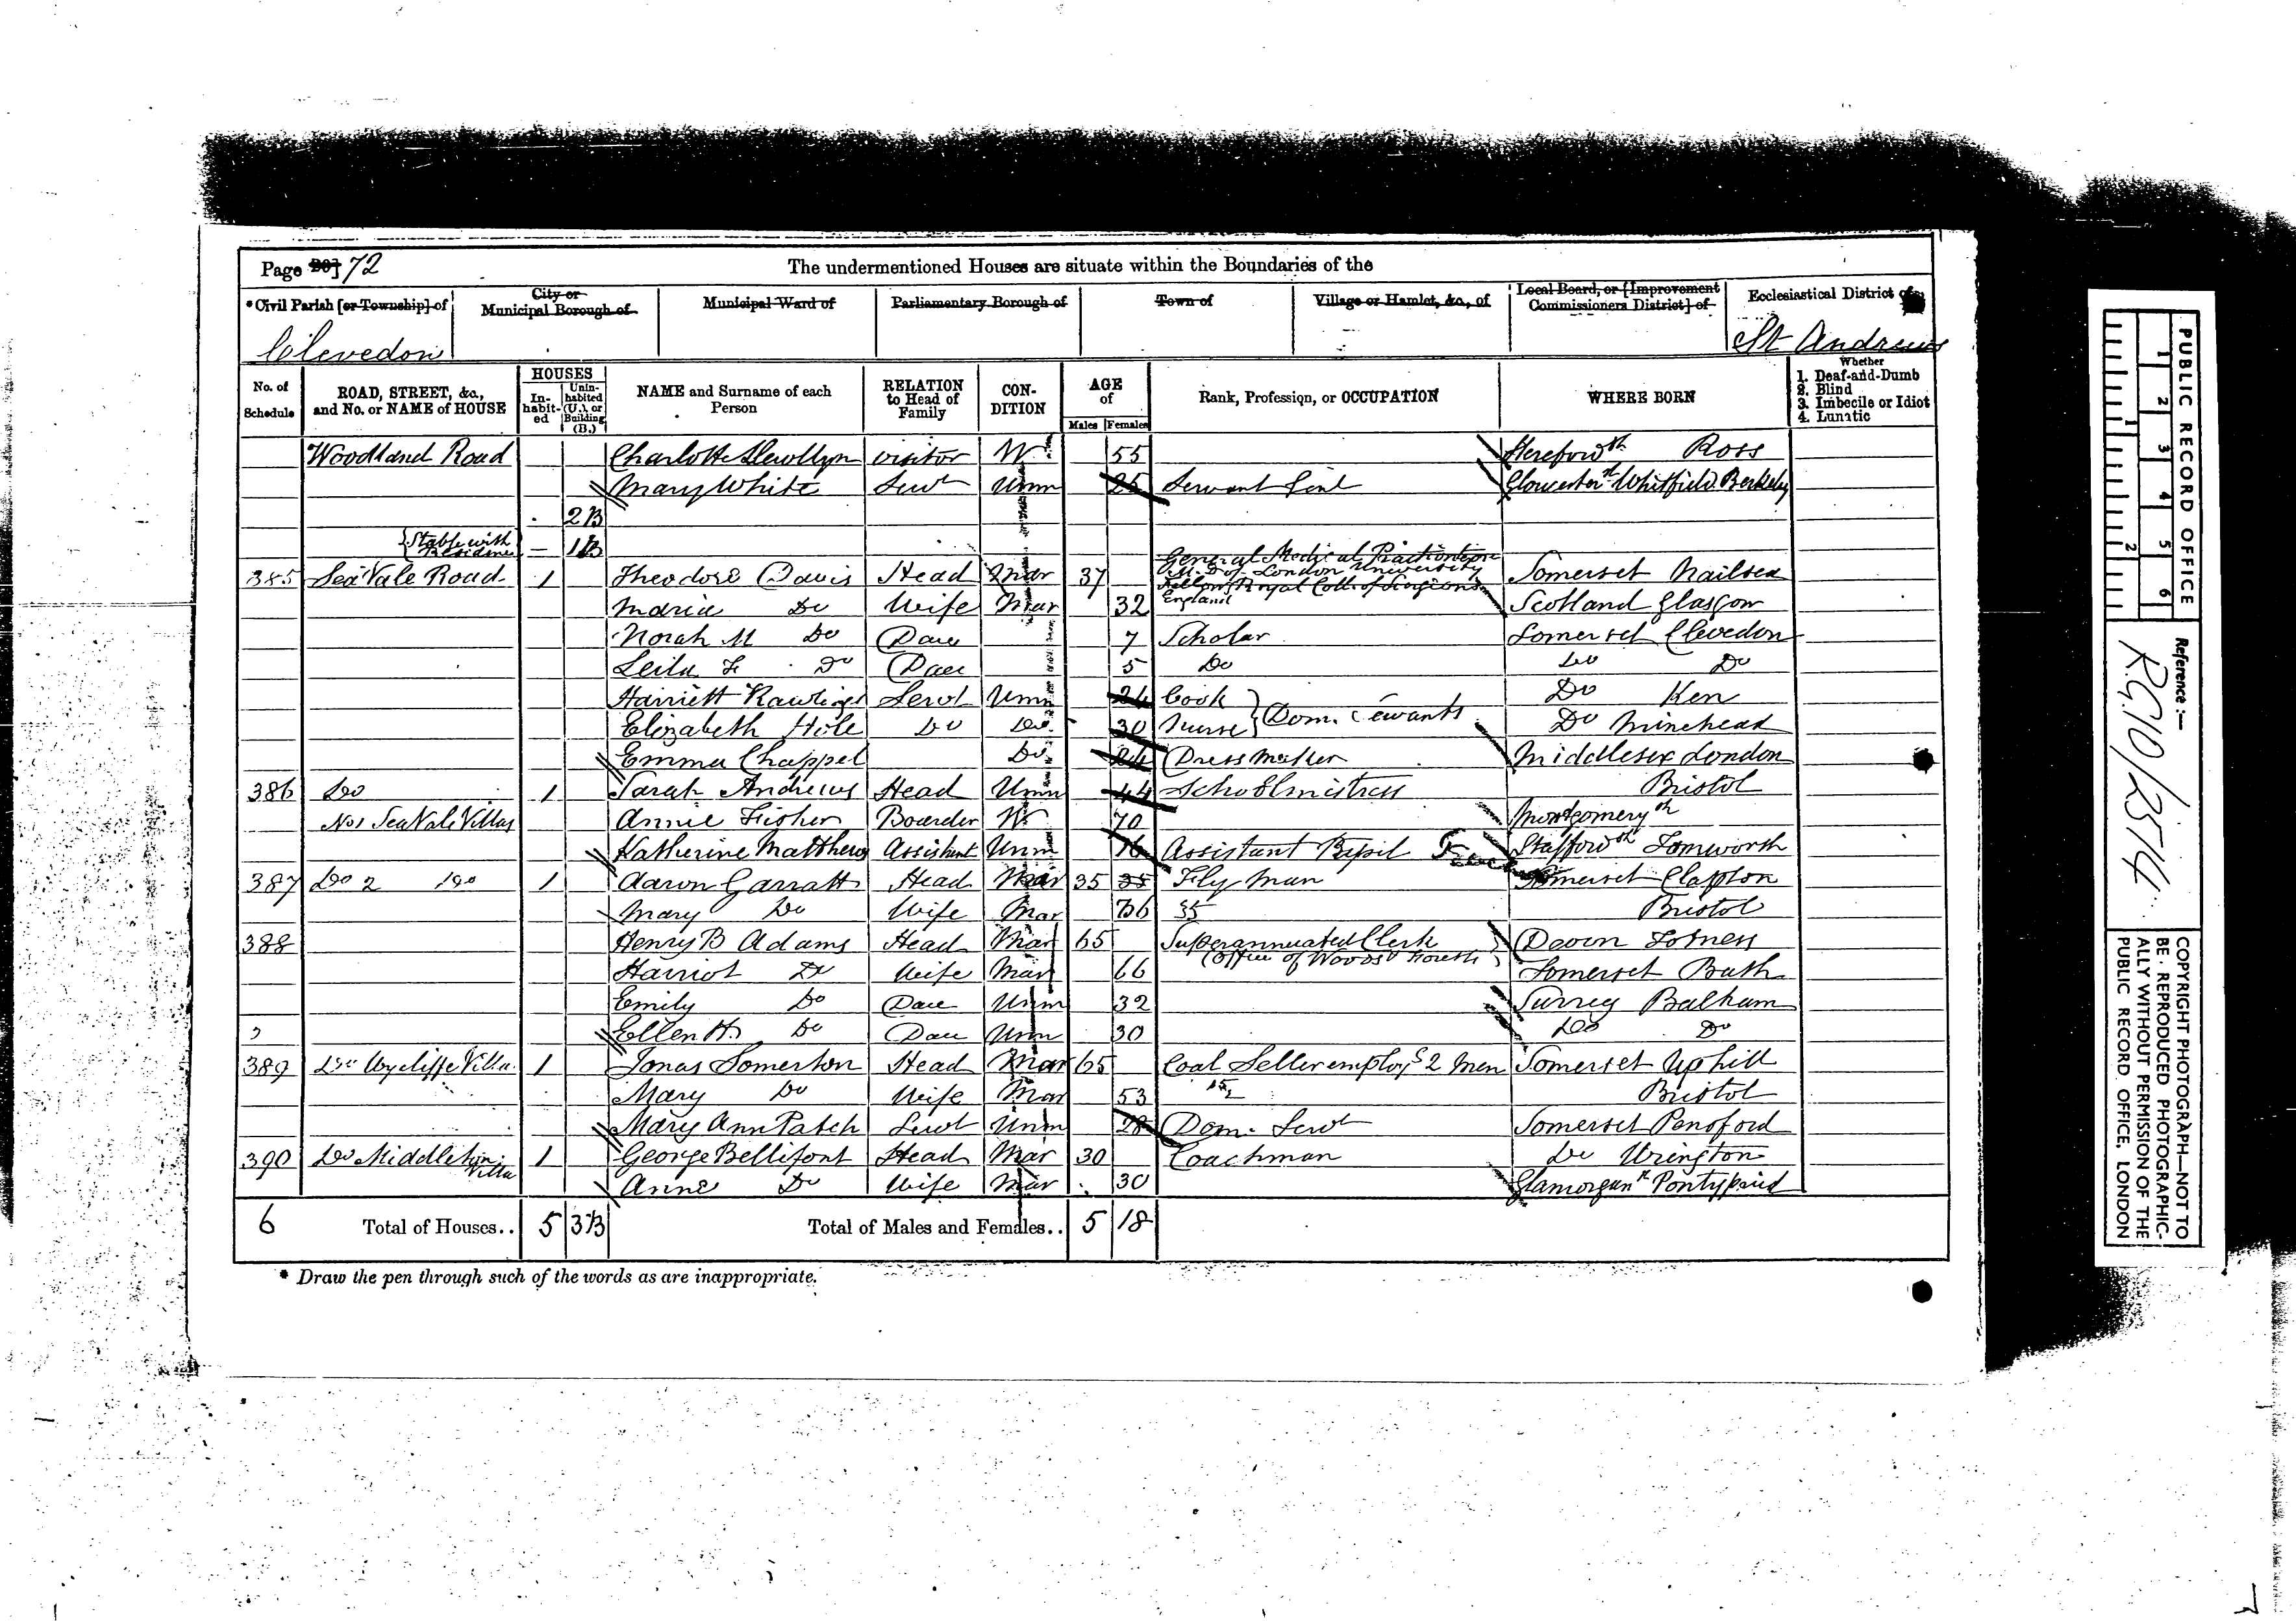 Page 20] 72 The undermentioned Houses are situate within the Boundaries of the
* Civil Parish [or Township] of City or Municipal Borough of Municipal Ward of Parliamentary Borough of Town of Village or Hamlet, &c., of Local Board, or [Improvement Commissioners District] of Ecclesiastical District of
Clevedon St Andrews
No. of Schedule ROAD, STREET, &c., and No. or NAME of HOUSE HOUSES In-habit-ed Unin-habited (U.), or Building (B.) NAME and Surname of each Person RELATION to Head of Family CON-DITION AGE of Males Females Rank, Profession, or OCCUPATION WHERE BORN Whether 1. Deaf-and-Dumb 2. Blind 3. Imbecile or Idiot 4. Lunatic
Woodland Road Charlotte Llewllyn visitor W 55 Hereford sh Ross
Mary White Servt Unm 25 Servant Genl Gloucester sh Whitfield Berkeley
2B
{Stable with Residence – 1B
385 Sea Vale Road 1 Theodore Davis Head Mar 37 General Medical Practitioner M.D of London University Fellow Royal Coll. of Surgeons England Somerset Nailsea
Maria Do Wife Mar 32 Scotland Glasgow
Norah M Do Daur 7 Scholar Somerset Clevedon
Leila F Do Daur 5 Do Do Do
Harriett Rawlings Servt Unm 24 Cook } Dom. Servants Do Ken
Elizabeth Hole Do Do 30 Nurse Do Minehead
Emma Chappel Do 24 Dressmaker Middlesex London
386 Do 1 Sarah Andrews Head Unm 44 Schoolmistress Bristol
No 1 Sea Vale Villas Annie Fisher Boarder W 70 Montgomery sh
Katherine Matthews Assistant Unm 16 Assistant Pupil Teacher Stafford sh Tamworth
387 Do 2 Do 1 Aaron Garratt Head Mar 35 35 Fly Man Somerset Clapton
Mary Do Wife Mar 36 Bristol
388 Henry B Adams Head Mar 65 Superannuated Clerk (Office of Woods & Forests) Devon Totness
Harriot Do Wife Mar 66 Somerset Bath
Emily Do Daur Unm 32 Surrey Balham
Ellen H. Do Daur Unm 30 Do Do
389 Do Wycliffe Villa 1 Jonas Somerton Head Mar 65 Coal Seller employs 2 men Somerset Uphill
Mary Do Wife Mar 53 Bristol
Mary Ann Patch Servt Unm 28 Dom. Servt Somerset Pensford
390 Do Middleton Villa 1 George Bellifont Head Mar 30 Coachman Do Wrington
Anne Do Wife Mar 30 Glamorgan sh Pontyprid
6 Total of Houses.. 5 3B Total of Males and Females.. 5 18
* Draw the pen through such of the words as are inappropriate.
PUBLIC RECORD OFFICE
1 2 3 4 5 6
1 2
Reference :—
R.G.10/2514
COPYRIGHT PHOTOGRAPH—NOT TO
BE REPRODUCED PHOTOGRAPHIC-
ALLY WITHOUT PERMISSION OF THE
PUBLIC RECORD OFFICE, LONDON